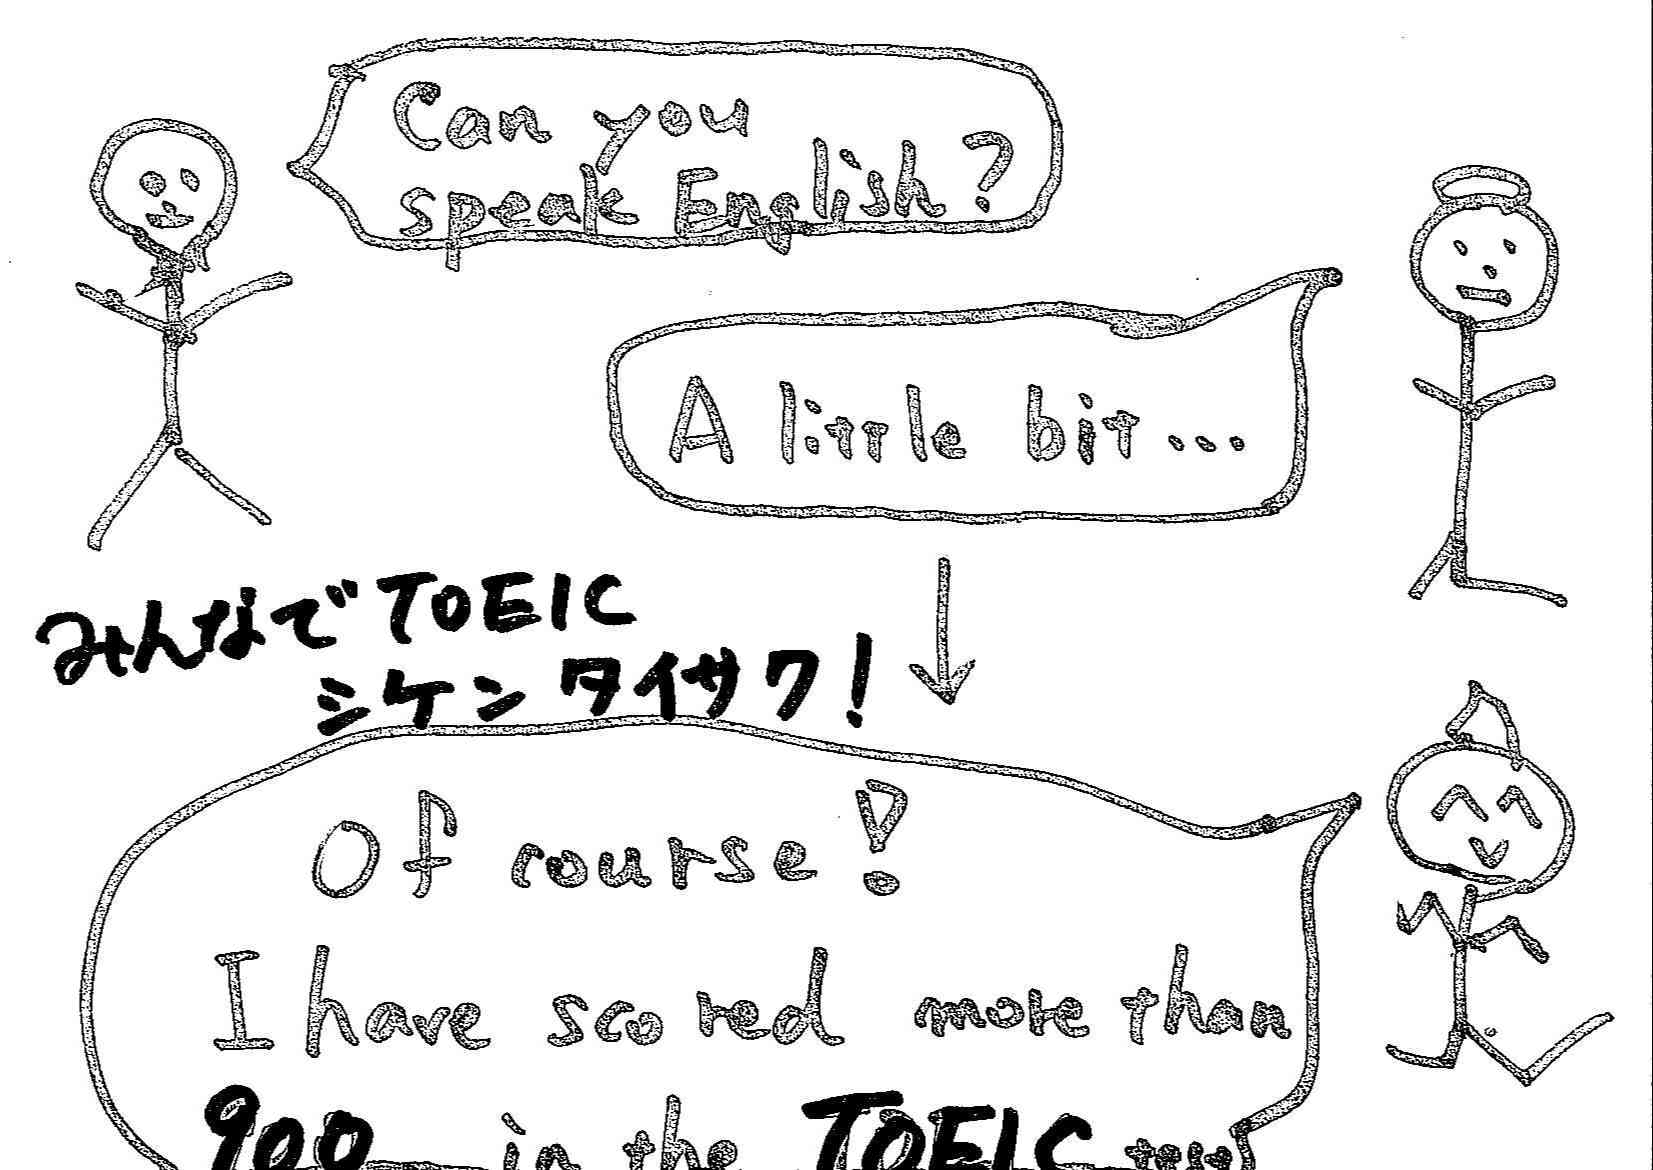 Can you
speak English?
A little bit...
みんなでTOEIC
シケンタイサク!
Of course!
I have scored more than
900 in the TOEIC test